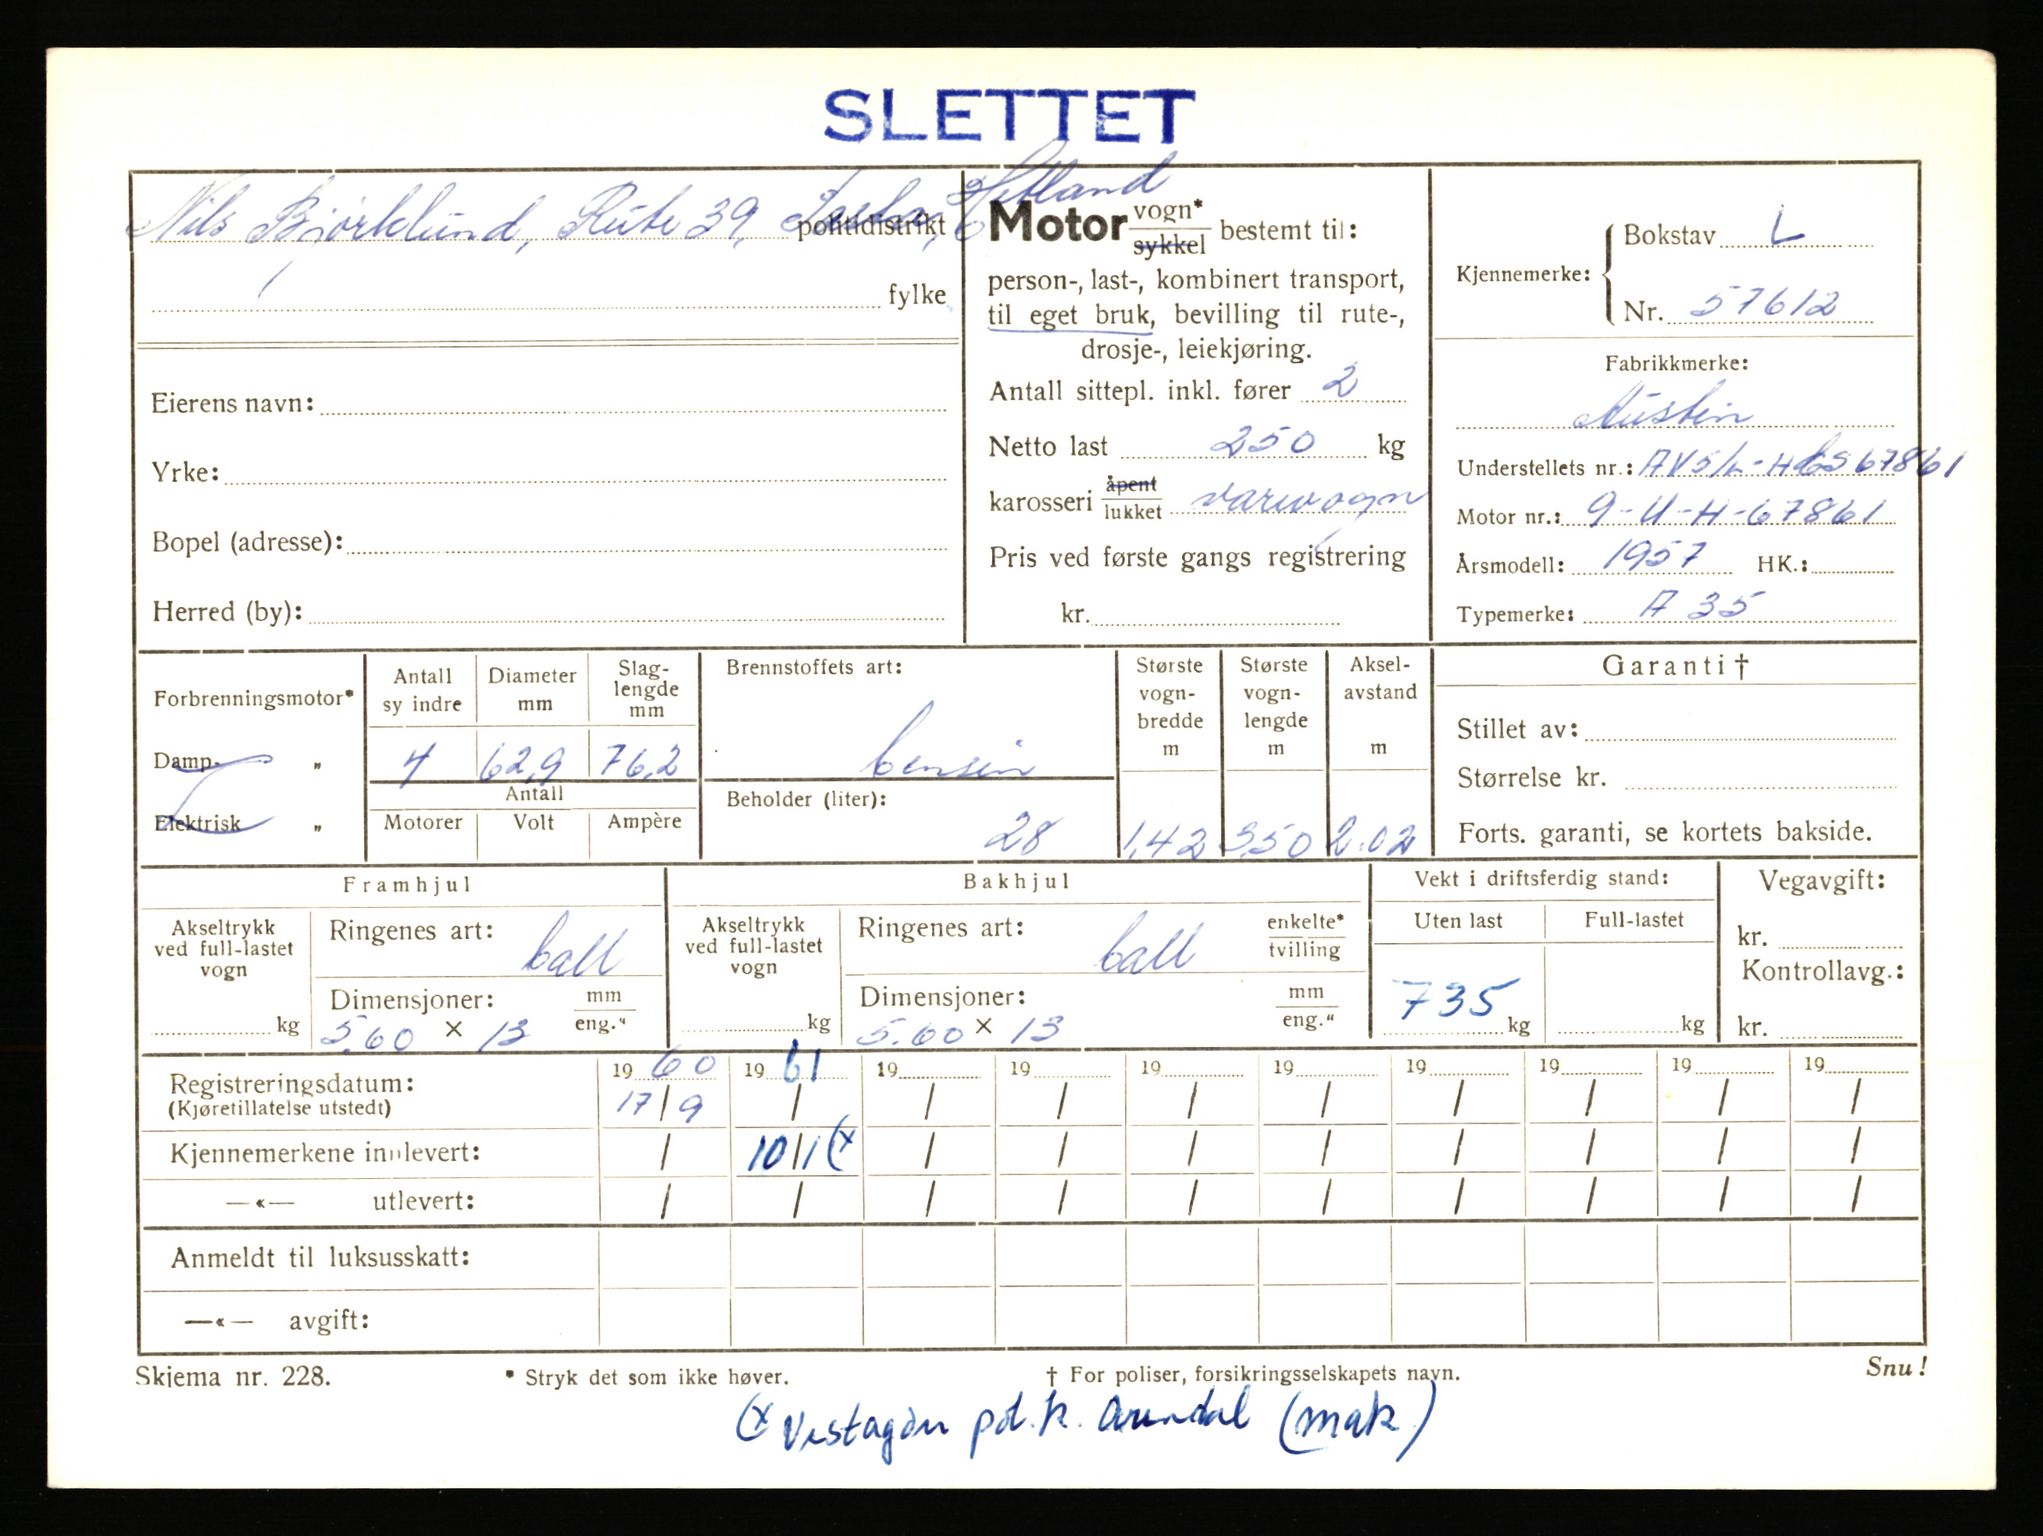 SLETTET
Nils Bjørklund, Rute 39, Hetland
politidistrikt
fylke
Eierens navn:
Yrke:
Bopel (adresse):
Herred (by):
Motor vogn* sykkel bestemt til:
person-, last-, kombinert transport,
til eget bruk, bevilling til rute-,
drosje-, leiekjøring.
Antall sittepl. inkl. fører 2
Netto last 250 kg
karosseri åpent lukket varevogn
Pris ved første gangs registrering
kr.
Kjennemerke:
Bokstav L
Nr. 57612
Fabrikkmerke:
Austin
Understellets nr.:
Motor nr.: 9-U-H-67861
Årsmodell: 1957 HK.:
Typemerke: A 35
Forbrenningsmotor*
Damp- "
Elektrisk "
Antall sy indre
Diameter mm
Slaglengde mm
4 62,9 76,2
Antall
Motorer Volt Ampère
Brennstoffets art:
bensin
Beholder (liter):
28
Største vognbredde m
1,42
Største vognlengde m
3,50
Akselavstand m
2.02
Garanti †
Stillet av:
Størrelse kr.
Forts. garanti, se kortets bakside.
Framhjul
Akseltrykk ved full-lastet vogn
kg
Ringenes art: ball
Dimensjoner: mm eng."
5.60 × 13
Bakhjul
Akseltrykk ved full-lastet vogn
kg
Ringenes art: ball
enkelte* tvilling
Dimensjoner: mm eng."
5.60 × 13
Vekt i driftsferdig stand:
Uten last Full-lastet
735 kg kg
Vegavgift:
kr.
Kontrollavg.:
kr.
19 60 19 61 19 19 19 19 19 19 19 19
Registreringsdatum:
(Kjøretillatelse utstedt) 17/9 / / / / / / / / /
Kjennemerkene innlevert: / 10/1 (x / / / / / / / /
—«— utlevert: / / / / / / / / / /
Anmeldt til luksusskatt:
—«— avgift:
Skjema nr. 228. * Stryk det som ikke høver. † For poliser, forsikringsselskapets navn. Snu!
(x pol.k. Arendal (mak)